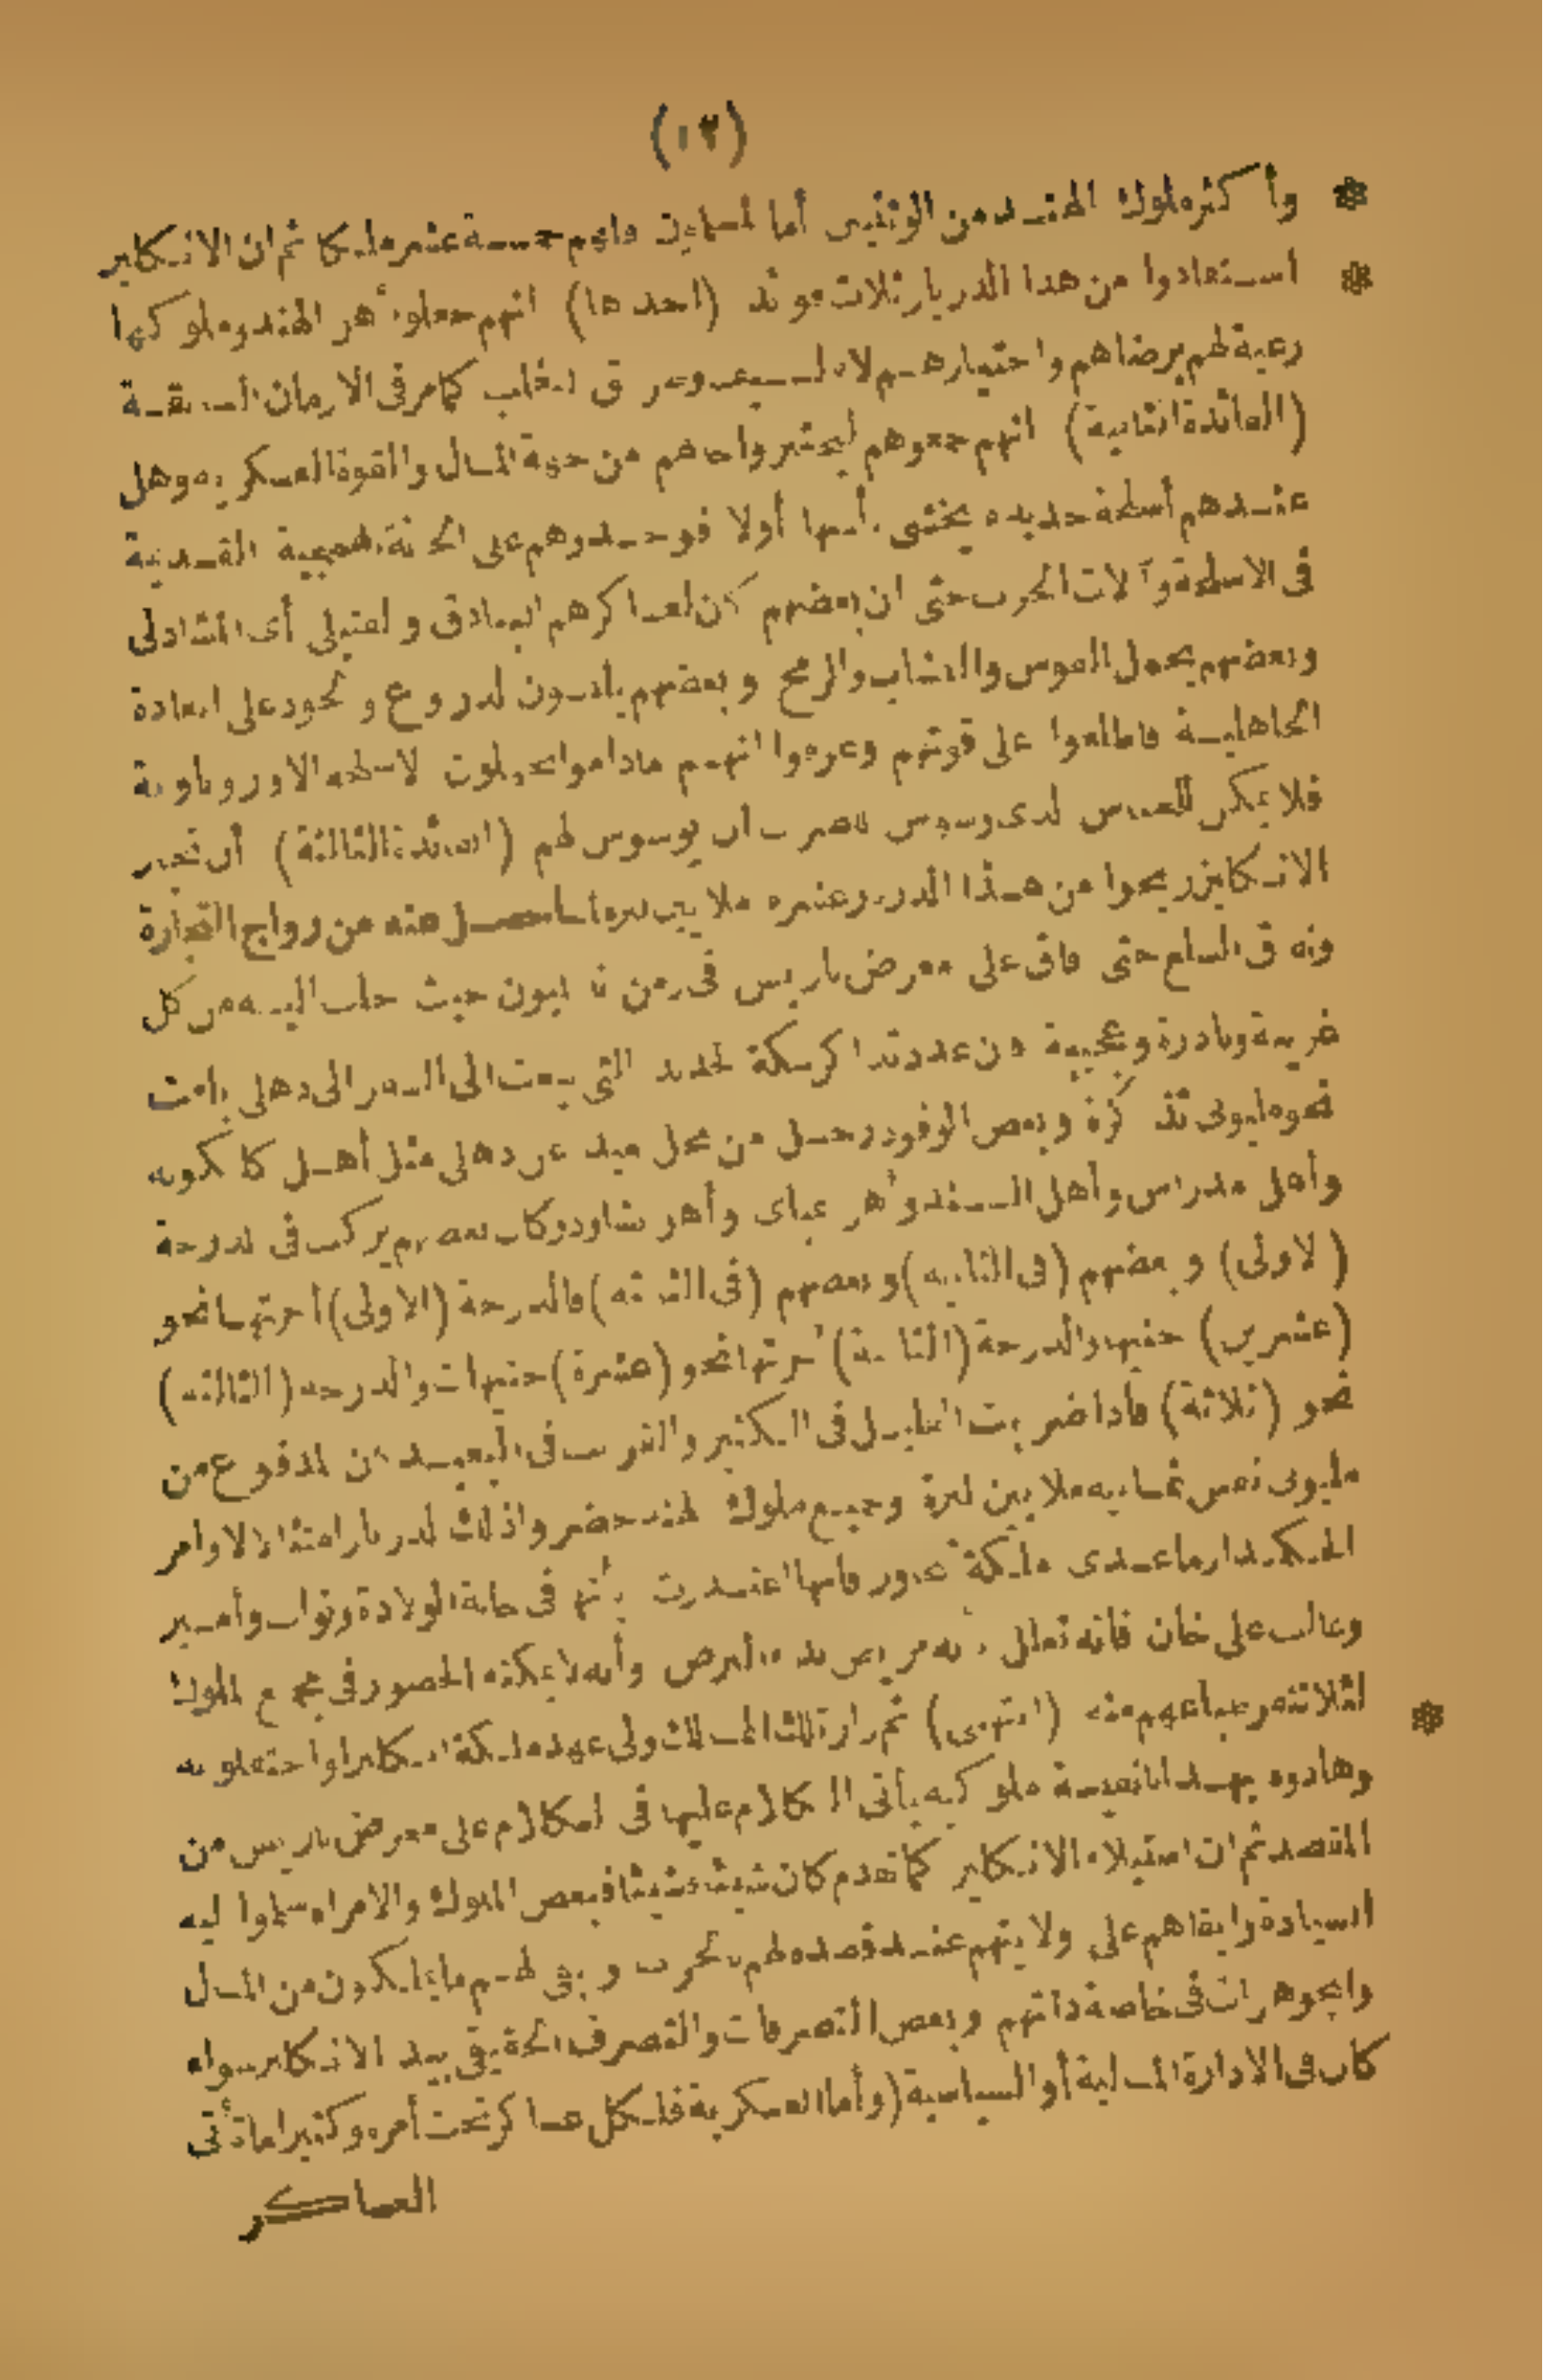 (١٢)
* وأكثر ملوك الهند من الوثنيين أما المسلمون فانهم خمسة عشر ملكا ثم ان الانكليز
* استفادوا من هذا الدربار ثلاث فوائد (احدها) انهم جعلوا أهل الهند وملوكها
رعية لهم برضاهم واختيارهم لا بالسيف و كما مر فى الازمان السابقة
(الفائدة الثانية) انهم جمعوهم ليختبروا حالهم من جهة المال والقوة العسكرية وهل
عندهم أسلحة جديدة يخشى بأسها أولا فوجدوهم على الحالة الهمجية القديمة
فى الاسلحة وآلات الحرب حتى ان بعضهم كان لعساكرهم البنادق والفتيلى أى
وبعضهم يحمل القوس والنشاب والرمح وبعضهم يلبسون الدروع والخود على العادة
الجاهلية فاطلعوا على قوتهم وعرفوا انهم ماداموا يجهلون الاسلحة الاوروباوية
فلا يمكن للدساس لدى وسوس أن يوسوس لهم (الفائدة الثالثة) أن تجار
الانكليز ربحوا من هذا الدربار عشرة ملايين ليرة لما حصل منه من رواج التجارة
ونفاق السلع حتى فاق على معرض باريس فى زمن نابليون حيث جلب اليه من كل
غريبة ونادرة وعجيبة وان عدد تذاكر سكة الحديد التى بيعت الى السفر الى دهلى بلغت
نحو مليونى تذكرة وبعض الوفود رحل من محل بعيد عن دهلى مثل أهل كلكوته
وأهل مدراس وأهل السند وأهل عباى وأهل بشاور وكان بعضهم يركب فى الدرجة
(الاولى) وبعضهم (فى الثانية) وبعضهم (فى الثالثة) فالدرجة (الاولى) أجرتها نحو
(عشرين) جنيها والدرجة (الثانية) أجرتها نحو (عشرة) جنيهات والدرجة (الثالثة)
نحو (ثلاثة) فاذا ضربت القليل فى الكثير والقريب فى البعيد كان المدفوع من
مليونى نفس ثمانية ملايين ليرة وجميع ملوك الهند حضروا ذلك الدربار امتثالا لاوامر
الحكمدار ماعدى ملكة فانها اعتذرت بأنها فى حالة الولادة ونواب وأمير
وغالب على خان فانه تعلل بأنه مريض بداء البرص وأنه لا يمكنه الحضور فى مجمع الملوك
* لئلا تنفر طباعهم منه (انتهى) ثم زار تلك الممالك ولى عهد ملكة انكلترا واحتفلوا به
وهادوه بهدايا نفيسة ملوكية يأتى الكلام عليها فى الكلام على معرض باريس من
المقصد ثم ان استيلاء الانكليز كما تقدم كان شيئا فشيئا فبعض الملوك والامراء سلموا اليه
السيادة وأبقاهم على ولايتهم عند قصده لهم بالحرب وبقى لهم ما يملكون من المال
والجوهرات فى خاصة ذاتهم وبعض التصرفات والتصرف الحقيقى بيد الانكليز سواء
كان فى الادارة المالية أو السياسية (وأما العسكرية فلكل عساكر تحت أمره وكثيرا ما تأتى
العساكر